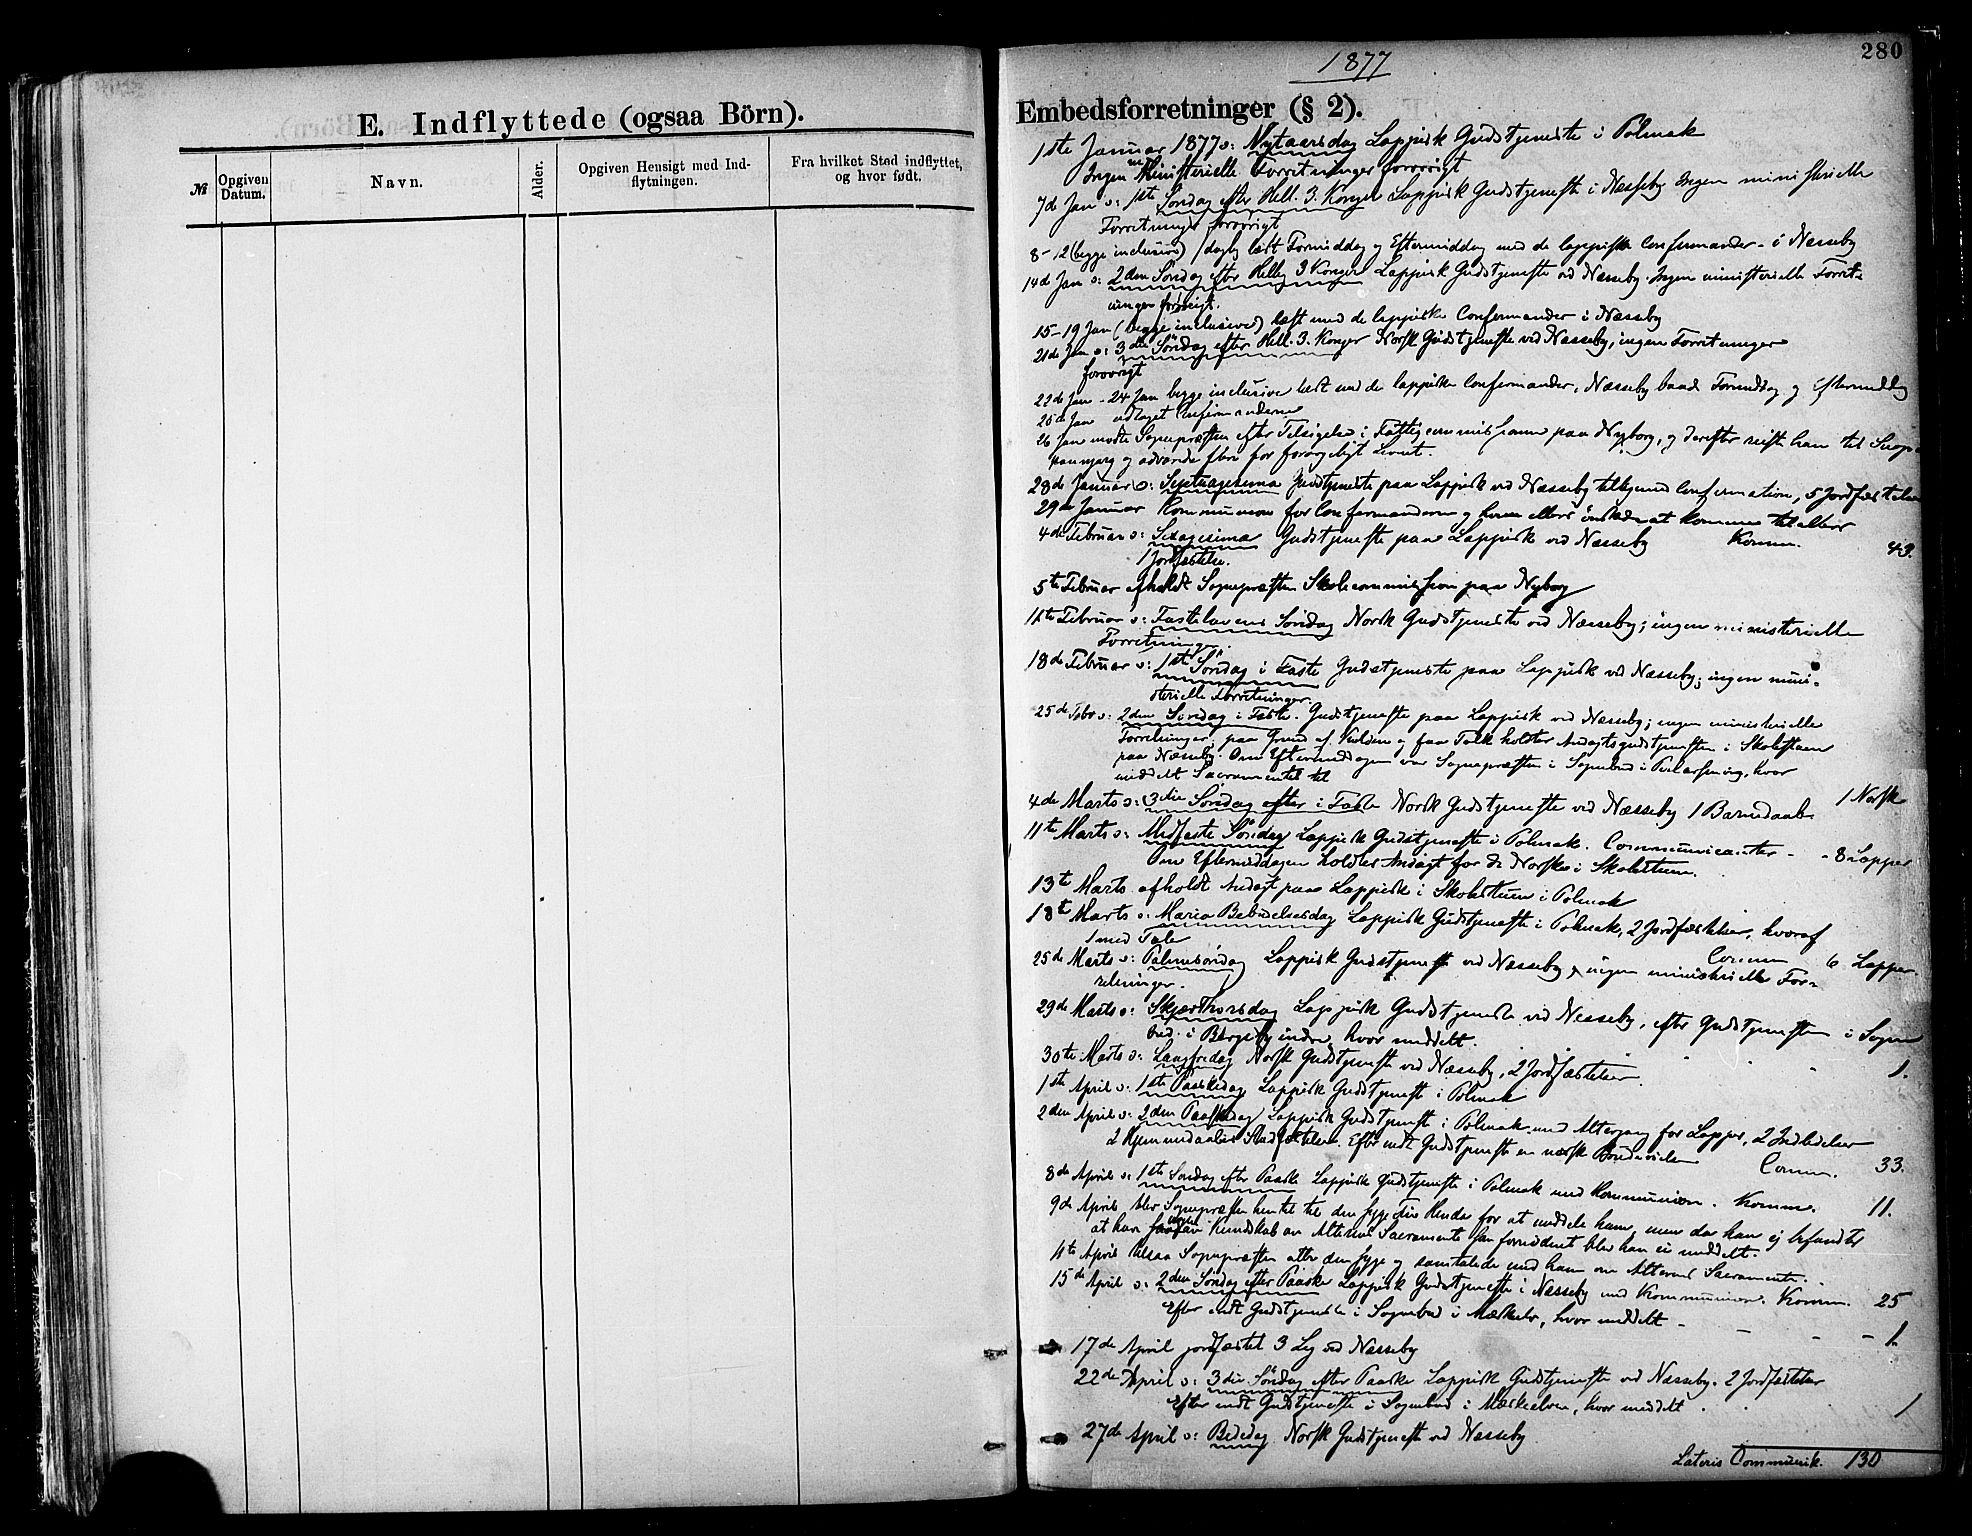 E. Indflyttede (ogsaa Börn).
№
Opgiven Datum.
Navn.
Alder.
Opgiven Hensigt med Ind-
flytningen.
Fra hvilket Sted indflyttet,
og hvor født.
280
1877
Embedsforretninger (§ 2).
1ste Januar 1877 o: Nytaarsdag Lappisk Gudstjeneste i Polmak
Ingen Ministerielle Forretninger forøvrigt
7de Jan o: 1ste Søndag efter Hell. 3. Konger Lappisk Gudstjeneste i Næsseby Ingen ministerielle
Forretninger forøvrigt
8-12 (begge inclusive) daglig læst Formiddag og Eftermiddag med de lappiske Confirmander i Næsseby
14de Jan o: 2den Søndag efter Hellig 3 Konger Lappisk Gudstjeneste ved Næsseby. Ingen ministerielle Forret-
ninger forøvrigt.
15-19 Jan (begge inclusive) læst med de lappiske Confirmander i Næsseby
21de Jan o: 3die Søndag efter Hell. 3. Konger Norsk Gudstjeneste ved Næsseby, ingen Forretninger
forøvrigt
22de Jan - 24 Jan begge inclusive læst med de lappiske Confirmander, Næsseby baade Formiddag og Eftermiddag
25de Jan udtaget Confirmanderne
26 Jan mødte Sognepræsten efter Tilsigelse i Fattigcommissionen paa Nyborg, og derefter reiste han til
og advarede flere for forargeligt Levnet.
28de Januar o: Septuagesima Gudstjeneste paa Lappisk ved Næsseby tilligemed Confirmation, 5 Jordfæstelser
29de Januar Kommunion for Confirmanderne og hvem ellers ønskede at komme til alters
4de Februar o: Sexagesima Gudstjeneste paa Lappisk ved Næsseby Komm. 43.
1 Jordfæstelse.
5te Februar afholdt Sognepræsten Skolecommission paa Nyborg
11te Februar o: Fastelavens Søndag Norsk Gudstjeneste ved Næsseby; ingen ministerielle
Forretninger.
18de Februar o: 1ste Søndag i Faste Gudstjeneste paa Lappisk ved Næsseby; ingen mini-
sterielle Forretninger.
25de Febr o: 2den Søndag i Faste. Gudstjeneste paa Lappisk ved Næsseby; ingen ministerielle
Forretninger; paa Grund af Kulden og faa Folk holdtes Andagtsgudstjenesten i Skolestuen
paa Næsseby. Om Eftermiddagen var Sognepræsten i Sognebud i hvor
meddelt Sacramentet til 1 Norsk
4de Marts o: 3die Søndag efter i Faste Norsk Gudstjeneste ved Næsseby 1 Barnedaab.
11te Marts o: Midfaste Søndag Lappisk Gudstjeneste i Polmak. Communicanter - - 8 Lapper
Om Eftermiddagen holdtes Andagt for de Norske i Skolestuen.
13te Marts afholdt Andagt paa Lappisk i Skolestuen i Polmak
18te Marts o: Maria Bebudelsesdag Lappisk Gudstjeneste i Polmak, 2 Jordfæstelser, hvoraf
1 med Tale Comm 6 Lapper.
25de Marts o: Palmesøndag Lappisk Gudstjeneste ved Næsseby, ingen ministerielle For-
retninger.
29de Marts o: Skjærthorsdag Lappisk Gudstjeneste ved Næsseby, efter Gudstjenesten i Sogne
bud i Bergeby indre, hvor meddelt. 1.
30te Marts o: Langfredag Norsk Gudstjeneste ved Næsseby, 2 Jordfæstelser.
1ste April o: 1ste Paaskedag Lappisk Gudstjeneste i Polmak
2den April o: 2den Paaskedag Lappisk Gudstjeneste i Polmak med Altergang for Lapper, 2 Indledelser
2 Hjemmedaabs Stadfæstelser. Efter endt Gudstjeneste en norsk Brudevielse Comm. 33.
8de April o: 1ste Søndag efter Paaske Lappisk Gudstjeneste i Polmak med Kommunion. Komm. 11.
9de April blev Sognepræsten hentet til den syge for at meddele ham, men da han ej befandtes
at have nogen Kundskab om Alterens Sacramente blev han ei meddelt.
11te April tilsaa Sognepræsten atter den syge og samtalede med ham om Alterens Sacramente.
15de April o: 2den Søndag efter Paaske Lappisk Gudstjeneste i Næsseby med Kommunion. Komm. 25
Efter endt Gudstjeneste i Sognebud i Mæskelv, hvor meddelt - - - - 1.
17de April jordfæstet 3 Lig ved Næsseby
22de April o: 3die Søndag efter Paaske Lappisk Gudstjeneste ved Næsseby. 2 Jordfæstelser
Efter endt Gudstjeneste i Sognebud i Mæskelven, hvor meddelt . 1
27de April o: Bededag Norsk Gudstjeneste ved Næsseby
Lateris Communik. 130